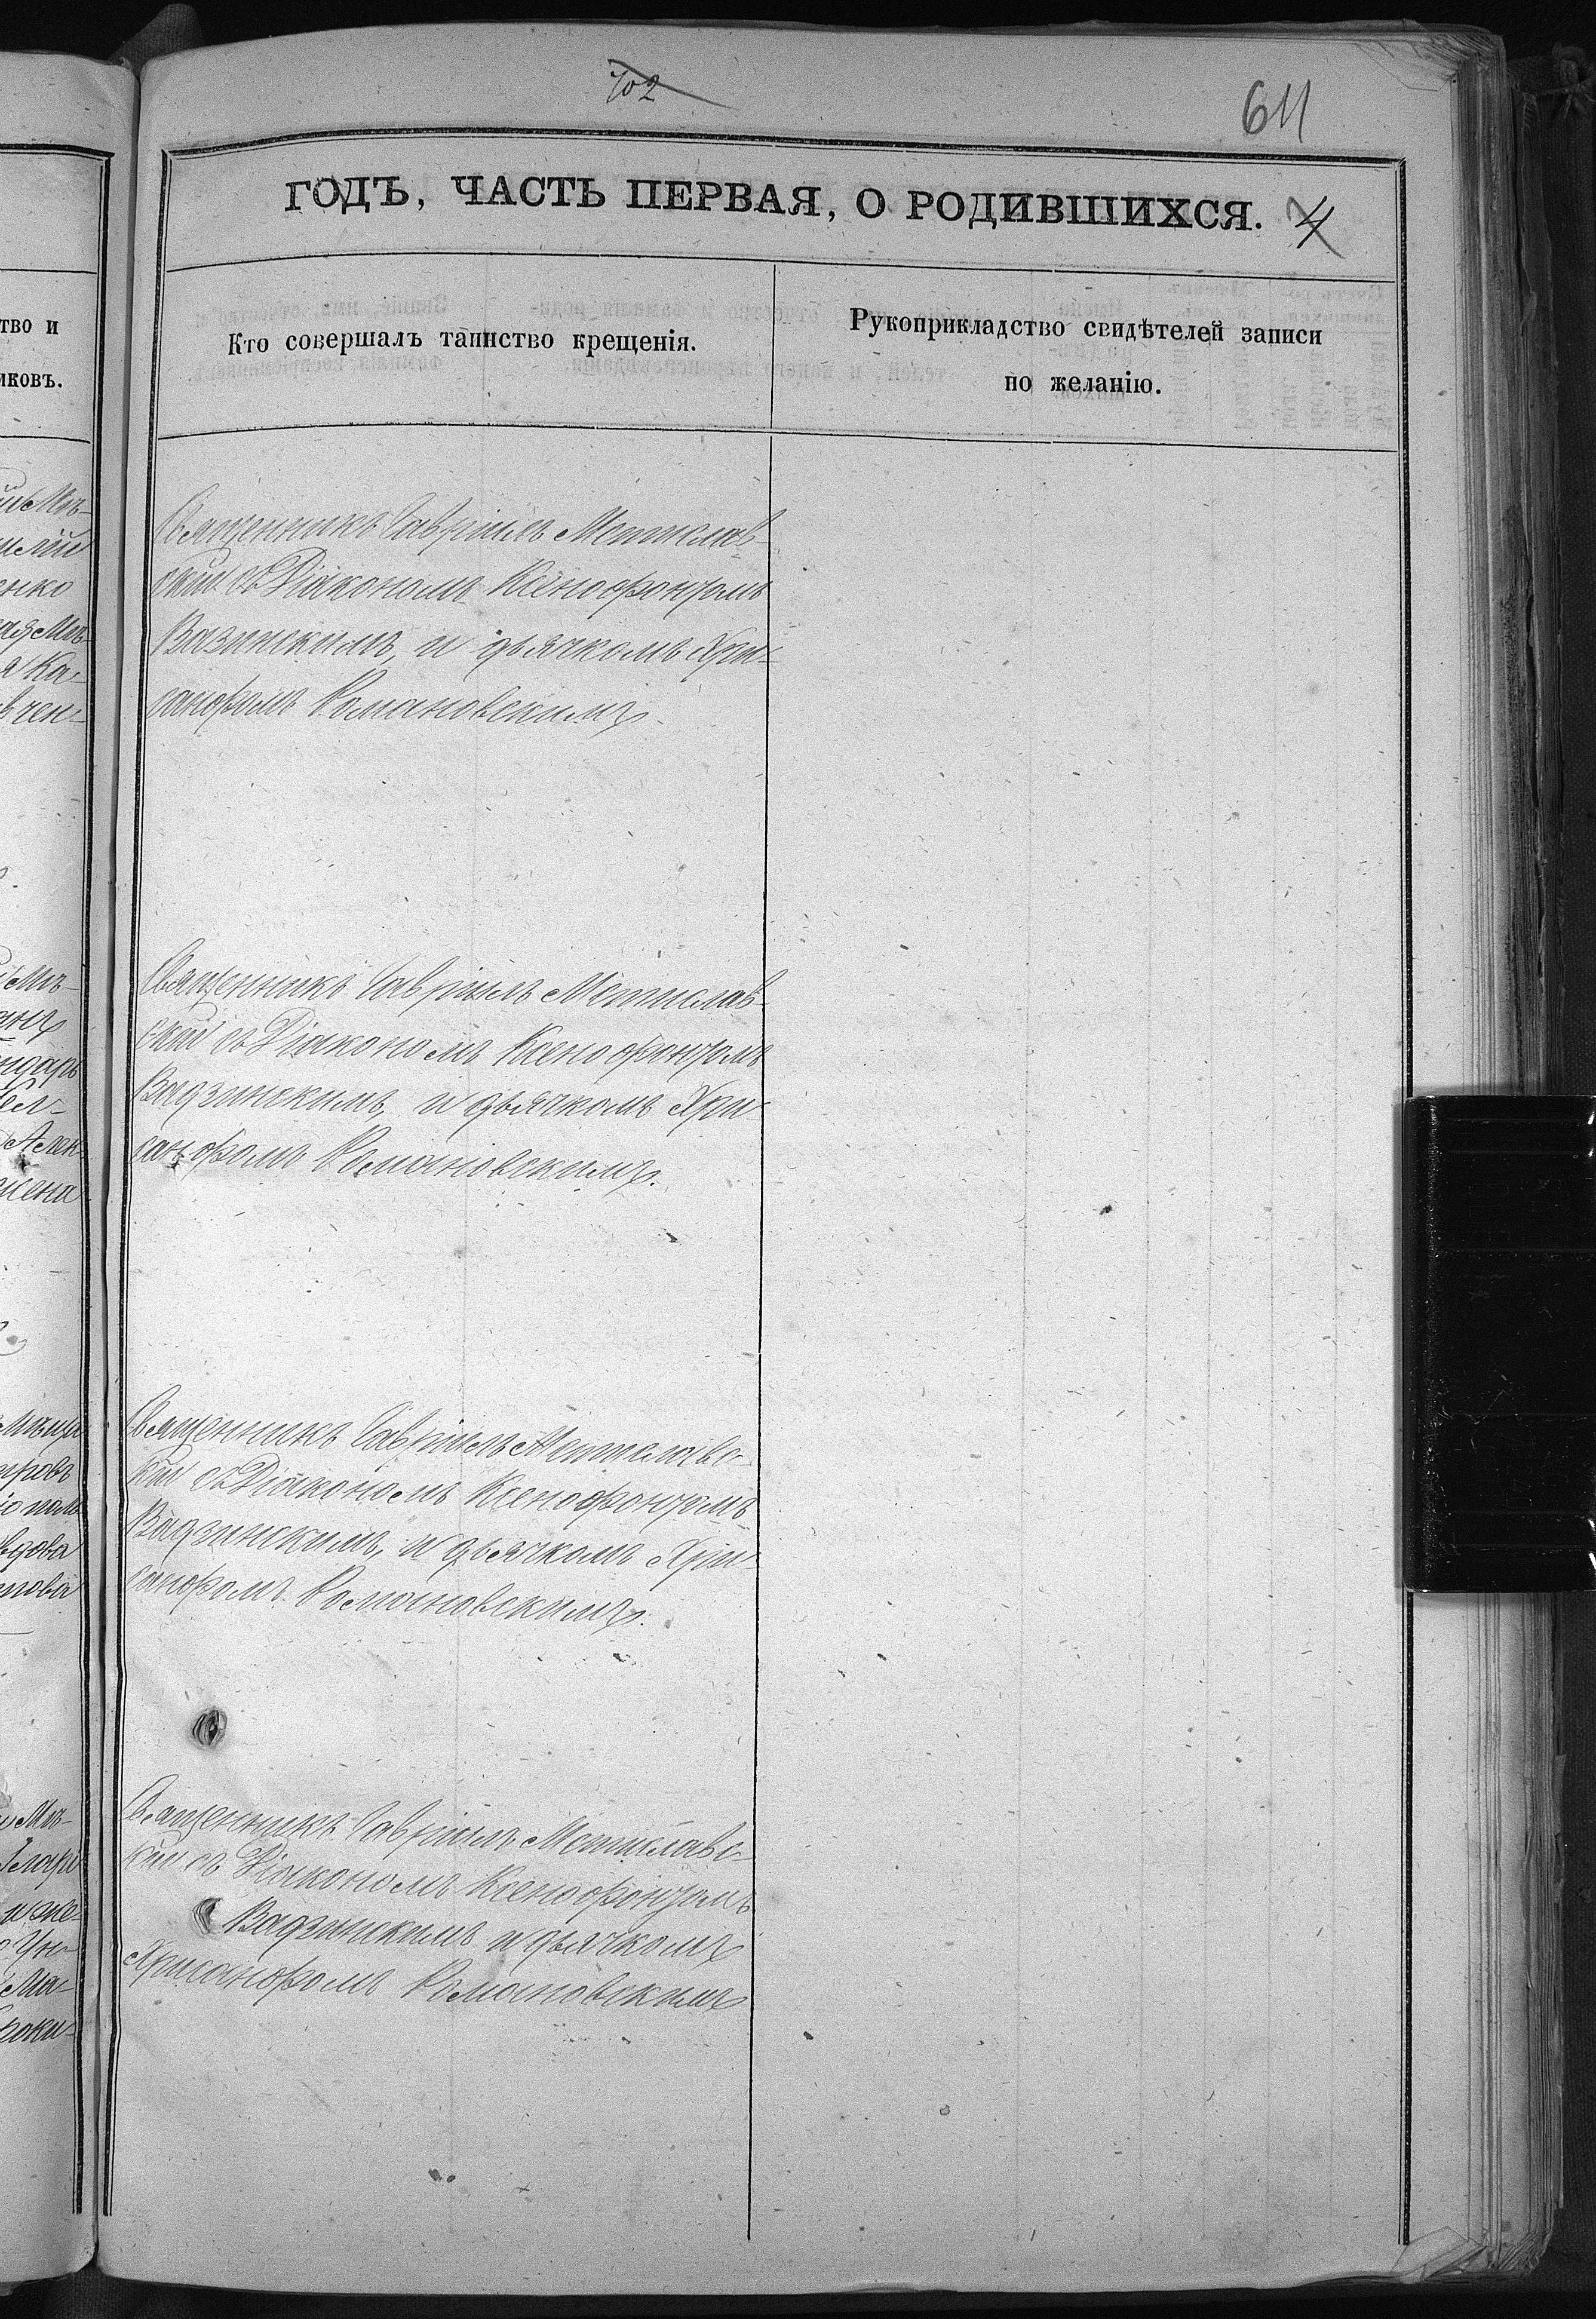 702
611
ГОДЪ, ЧАСТЬ ПЕРВАЯ, О РОДИВШИХСЯ. 4
тво и
иковъ.
Кто совершалъ таинство крещенія.
Рукоприкладство свидѣтелей записи
по желанію.
Священникъ Гавріилъ Мстислав-
скій съ Діякономъ Ксенофонтомъ
Вазинскимъ, и дьячкомъ Хри-
санфомъ Романовскимъ.
Священникъ Гавріилъ Мстислав-
скій съ Діякономъ Ксенофонтомъ
Вадзинскимъ, и дьячкомъ Хри-
санфомъ Романовскимъ.
Священникъ Гавріилъ Мстиславс-
кій съ Діякономъ Ксенофонтомъ
Вадзинскимъ, и дьячкомъ Хри-
санфомъ Романовскимъ.
Священникъ Гавріилъ Мстиславс-
кій съ Діякономъ Ксенофонтомъ
Вадзинскимъ и дьячкомъ
Хрисанфомъ Романовскимъ